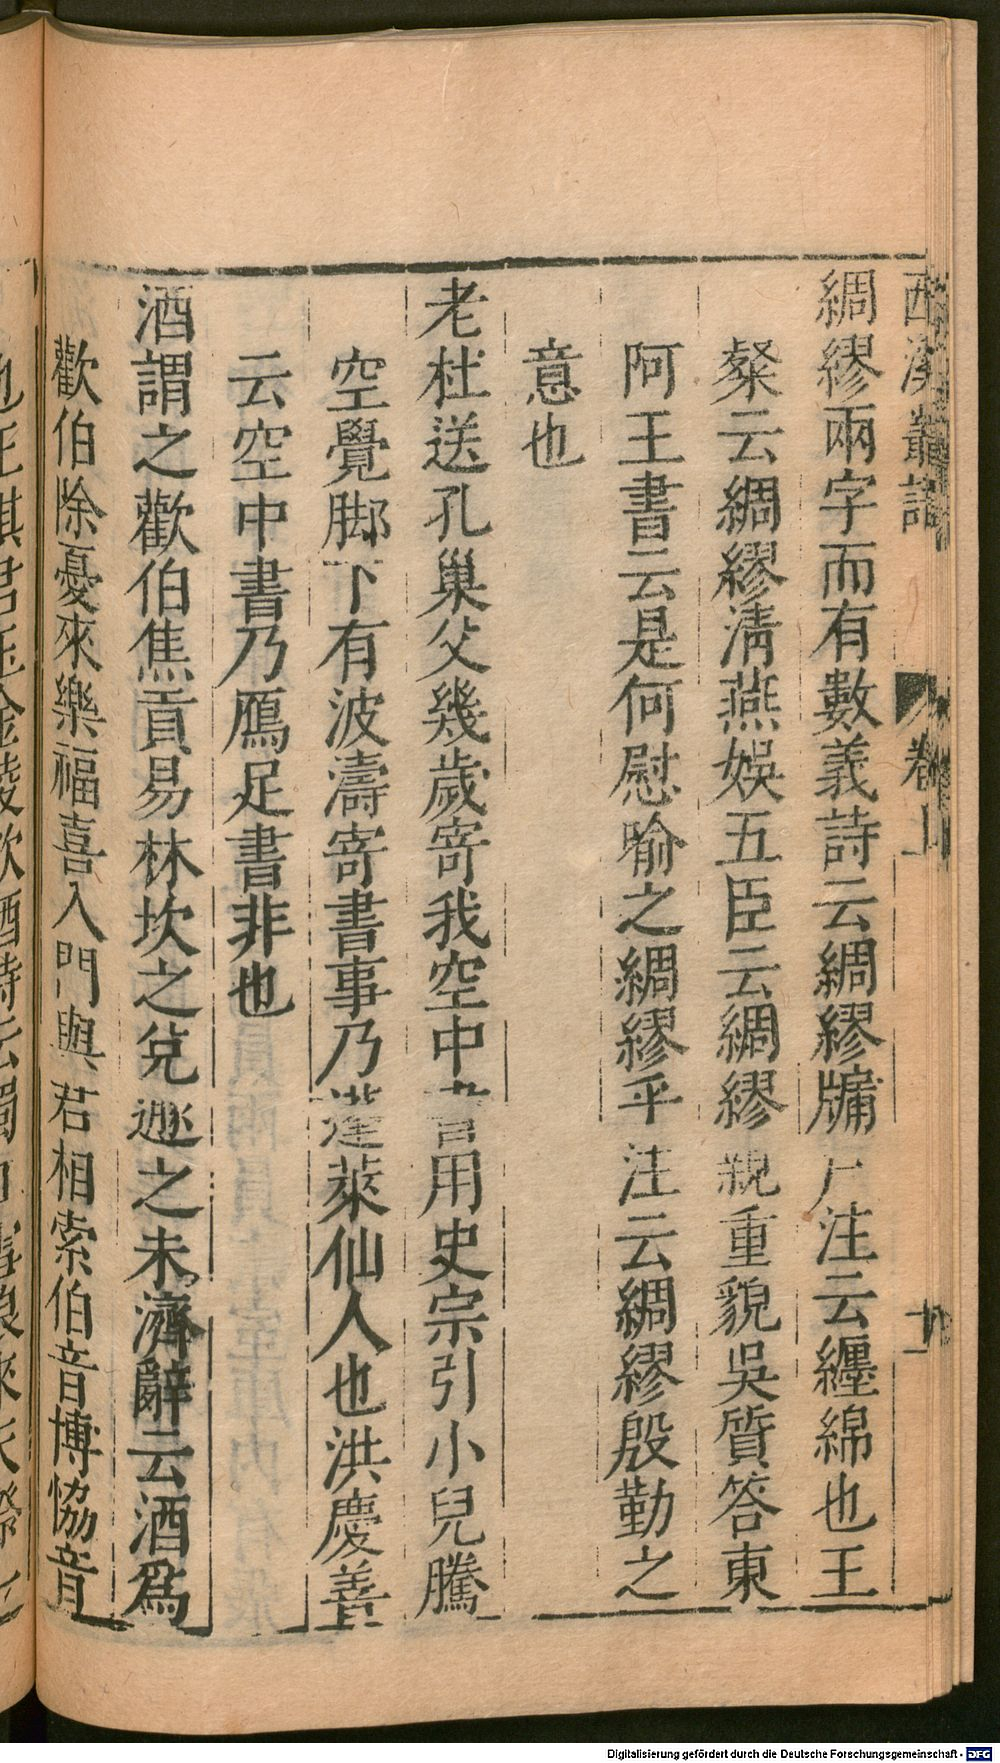 西溪叢語 卷上
綢繆兩字而有數義詩云綢繆牖户注云纒綿也王
粲云綢繆清燕娛五臣云綢繆親重貌吳質答東
阿王書云是何慰喻之綢繆乎注云綢繆殷勤之
意也
老杜送孔巢父幾歲寄我空中書用史宗引小兒騰
空覺脚下有波濤寄書事乃蓬萊仙人也洪慶善
云空中書乃鴈足書非也
酒謂之歡伯焦貢易林坎之兌遯之未濟辭云酒爲
歡伯除憂來樂福喜入門與君相索伯音博協音
Digitalisierung gefördert durch die Deutsche Forschungsgemeinschaft - DFG